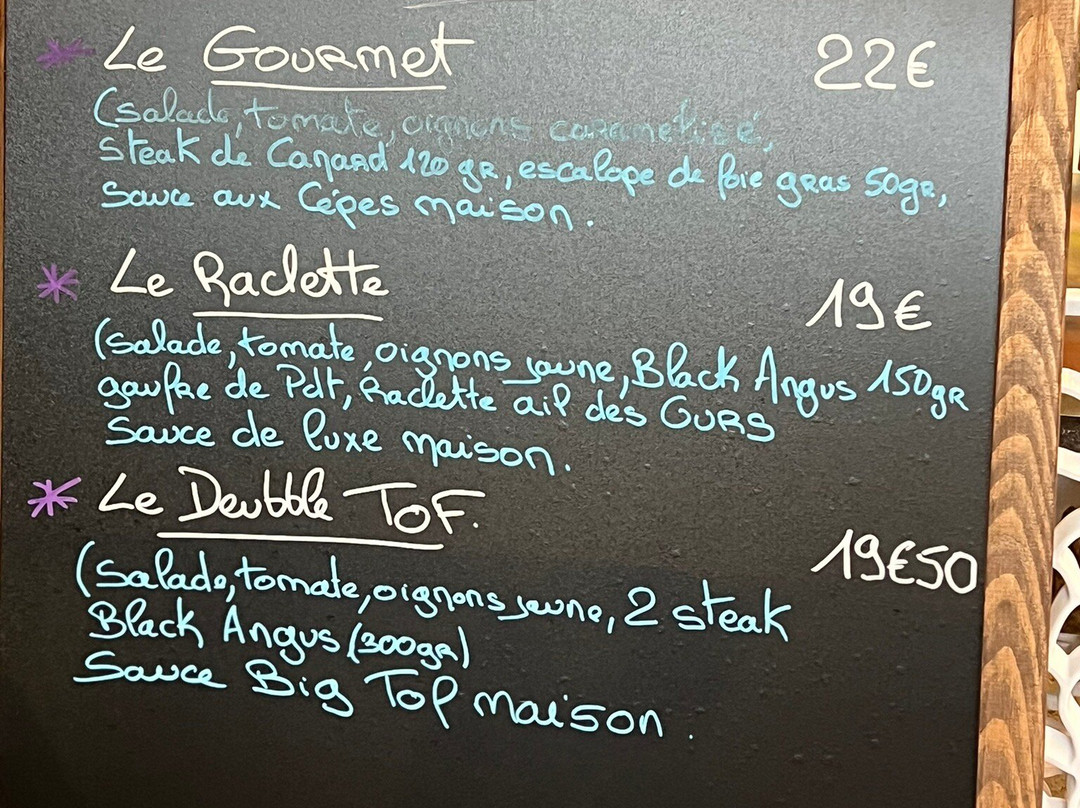 * Le Gourmet 22€
(salade, tomate, oignons caramelisé,
Steak de Canard 120 gr, escalope de foie gras 50gr,
Sauce aux Cépes maison.
* Le Raclette 19€
(salade, tomate, oignons jaune, Black Angus 150gr
gaufre de Pdt, Raclette ail des OURS
Sauce de luxe maison.
* Le Deubble TOF. 19€50
(salade, tomate, oignons jaune, 2 steak
Black Angus (300gr)
Sauce Big Tof maison.